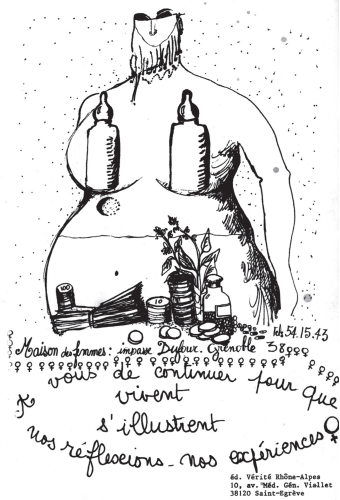 100
10
Tel. 54.15.43
Maison des femmes : impasse Dufour. Grenoble 38
vous de continuer pour que
vivent
s'illustrent
nos réflexions - nos expériences
éd. Vérité Rhône-Alpes
10, av. Méd. Gén. Viallet
38120 Saint-Egrève